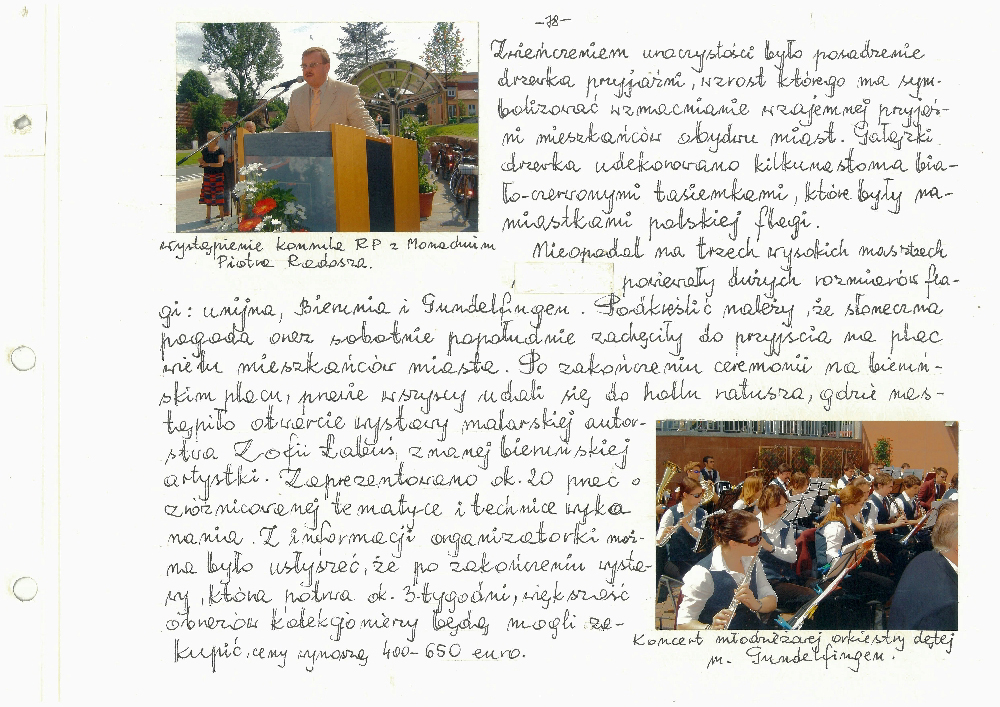 -78-
Zwieńczeniem uroczystości było posadzenie
drzewka przyjaźni, wzrost którego ma sym-
bolizować wzmacnianie wzajemnej przyjaź-
ni mieszkańców obydwu miast. Gałązki
drzewka udekorowano kilkunastoma bia-
ło-czerwonymi tasiemkami, które były na-
miastkami polskiej flagi.
wystąpienie konsula RP z Monachium
Piotra Radosza.
Nieopodal na trzech wysokich masztach
powiewały dużych rozmiarów fla-
gi: unijna, Bierunia i Gundelfingen. Podkreślić należy, że słoneczna
pogoda oraz sobotnie popołudnie zachęciły do przyjścia na plac
wielu mieszkańców miasta. Po zakończeniu ceremonii na bieruń-
skim placu, prawie wszyscy udali się do hollu ratusza, gdzie nas-
tąpiło otwarcie wystawy malarskiej autor-
stwa Zofii Łabuś, znanej bieruńskiej
artystki. Zaprezentowano ok. 20 prac o
zróżnicowanej tematyce i technice wyko
nania. Z informacji organizatorki moż-
na było usłyszeć, że po zakończeniu wysta-
wy, która potrwa ok. 3-tygodni, większość
obrazów kolekcjonierzy będą mogli za-
kupić, ceny wynoszą 400-650 euro.
Koncert młodzieżowej orkiestry dętej
m. Gundelfingen.